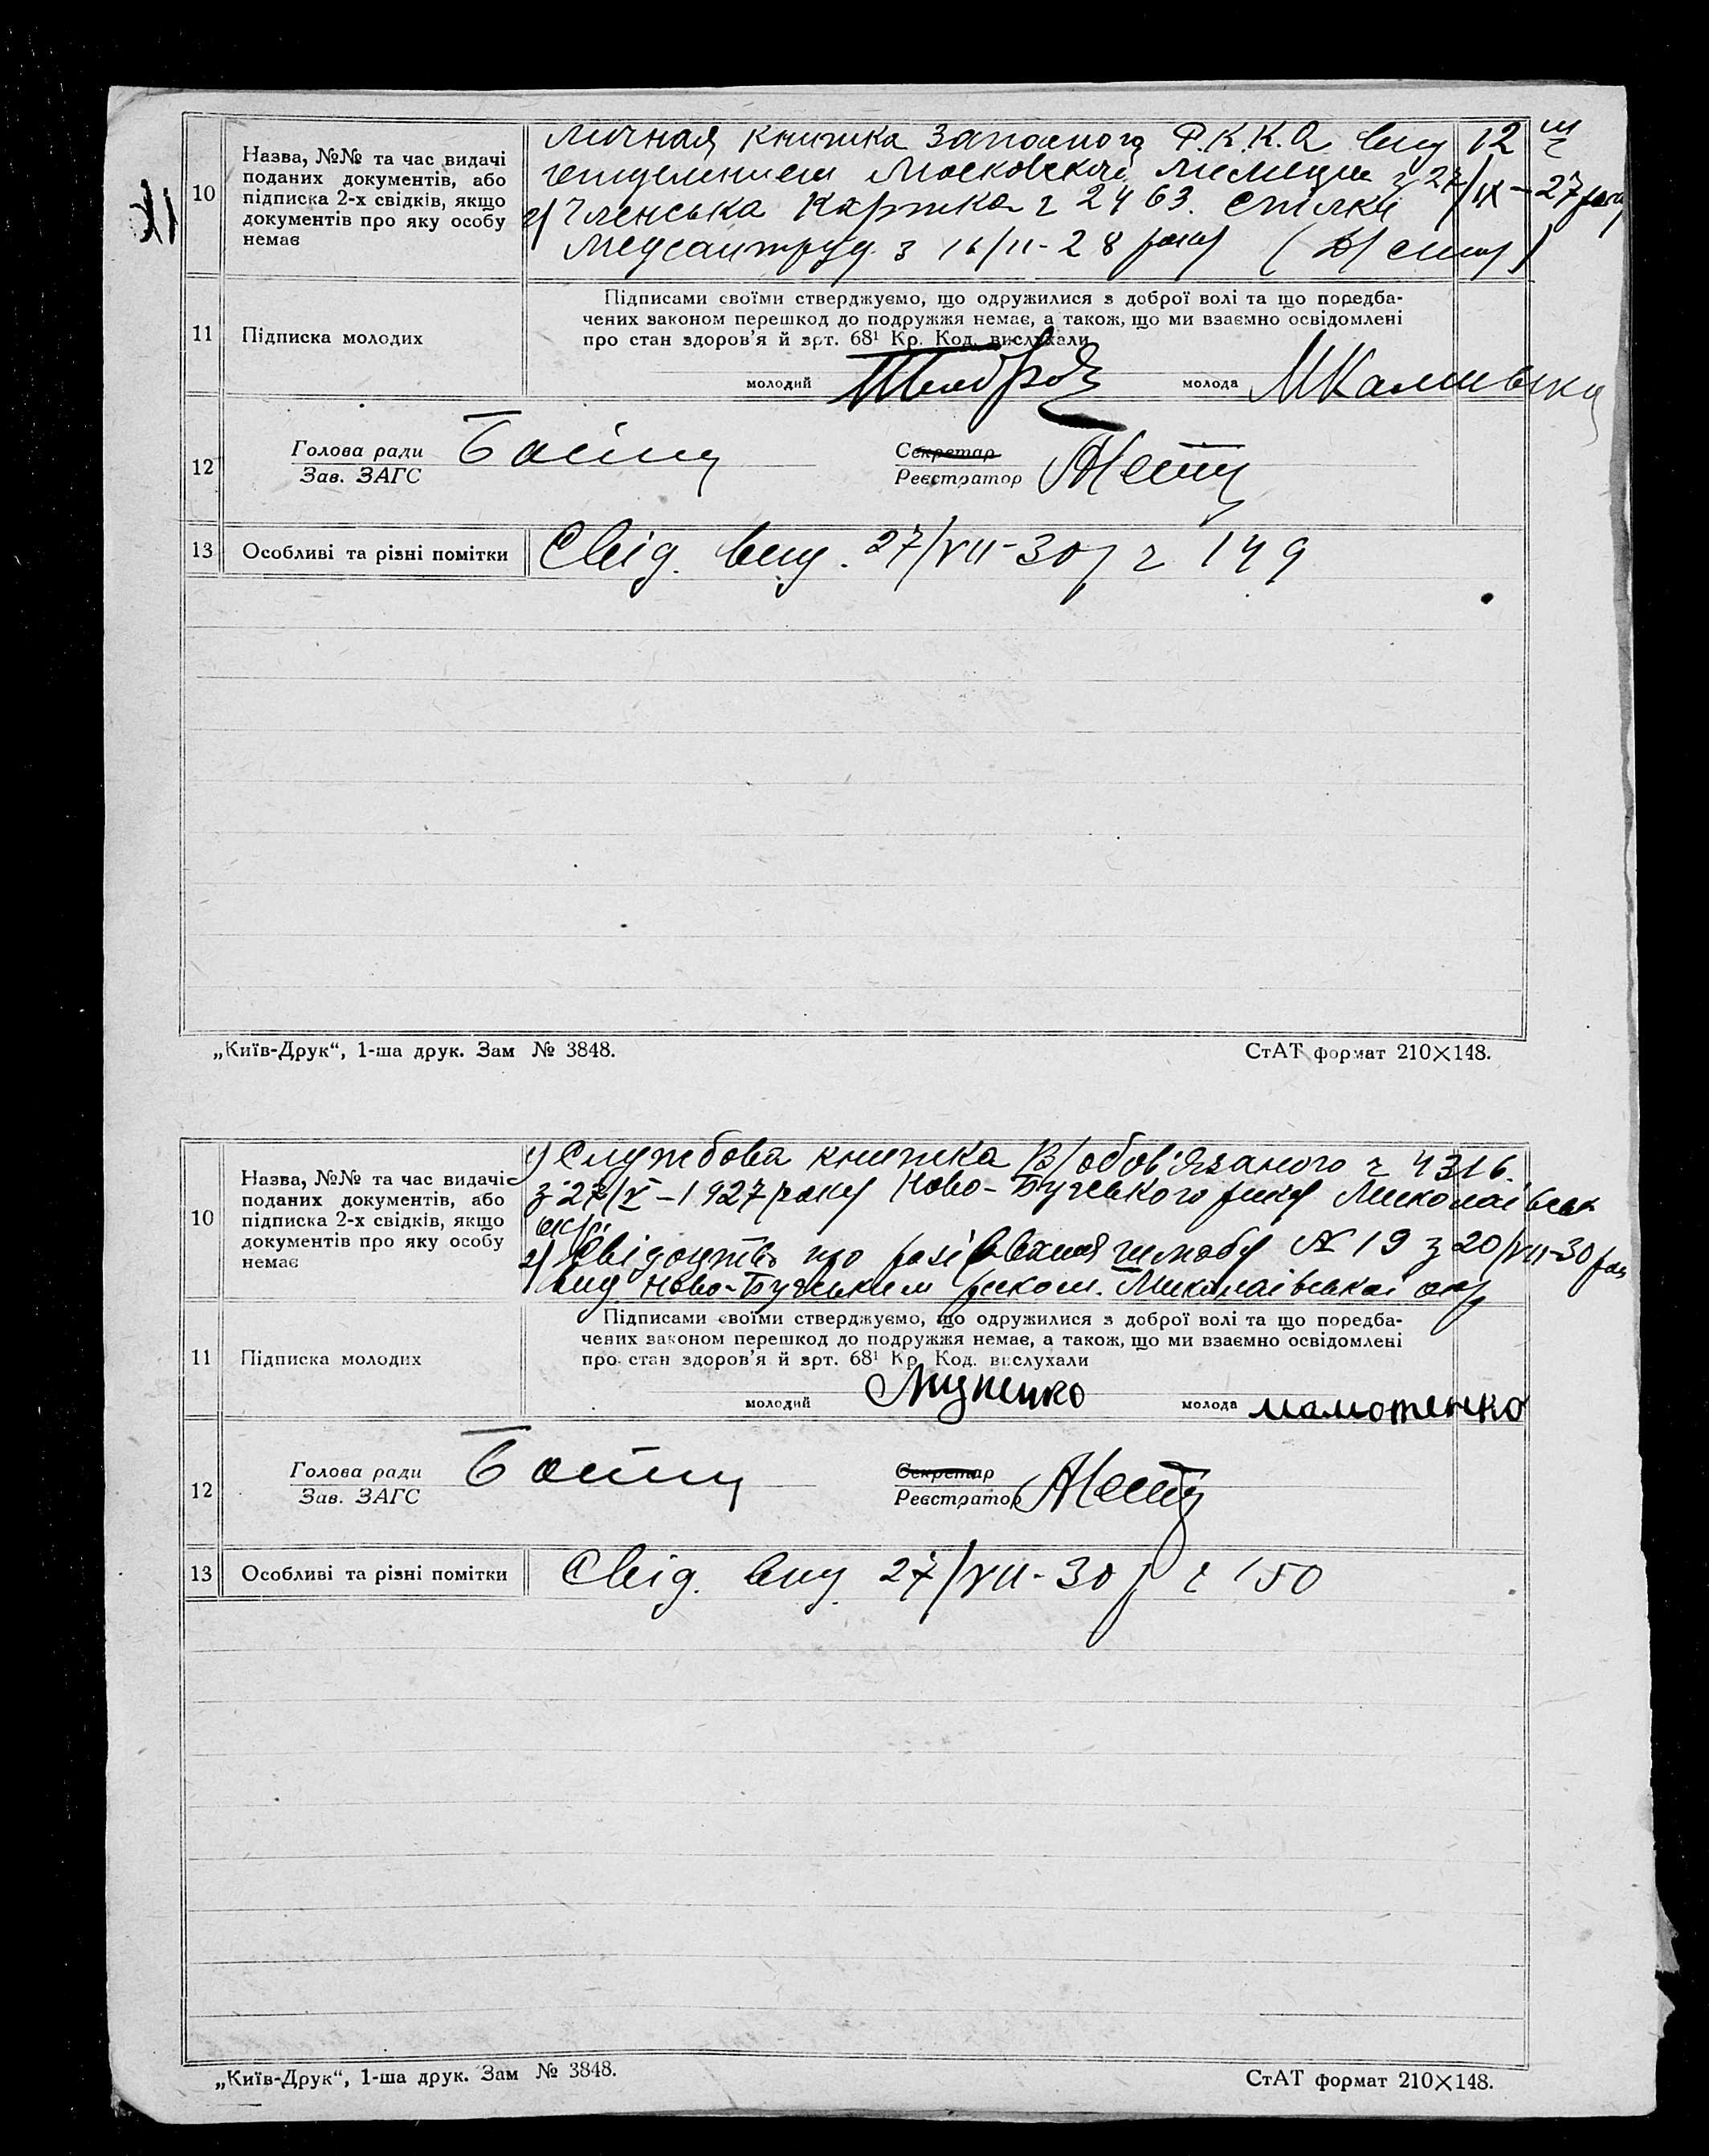 10
Назва, №№ та час видачі
поданих документів, або
підписка 2-х свідків, якщо
документів про яку особу
немає
Личная книжка Запасного Р.К.К.А вид 12 м
отделением Московской милиции з 27/IX-27 року
2) Членська картка ч 2463. Спілки
Медсантруд з 16/II-28 року
11
Підписка молодих
Підписами своїми стверджуємо, що одружилися з доброї волі та що поредба-
чених законом перешкод до подружжя немає, а також, що ми взаємно освідомлені
про стан здоров'я й зрт. 68¹ Кр. Код. вислухали
молодий
молода
12
Голова ради
Зав. ЗАГС
Секретар
Реєстратор
13
Особливі та різні помітки
Свід. вид. 27/VII-30 р ч 149
„Київ-Друк“, 1-ша друк. Зам № 3848.
СтАТ формат 210×148.
10
Назва, №№ та час видачі
поданих документів, або
підписка 2-х свідків, якщо
документів про яку особу
немає
1) Службова книжка В/обов'язаного ч 4316.
з 27/V-1927 року Ново-Бугського рику Миколаївськ
окр.
2) Свідоцтво про розірвання шлюбу № 19 з 20/VII-30 рок
вид Ново-Бугським риком. Миколаївської окр
11
Підписка молодих
Підписами своїми стверджуємо, що одружилися з доброї волі та що поредба-
чених законом перешкод до подружжя немає, а також, що ми взаємно освідомлені
про стан здоров'я й зрт. 68¹ Кр. Код. вислухали
молодий
молода
12
Голова ради
Зав. ЗАГС
Секретар
Реєстратор
13
Особливі та різні помітки
Свід. вид. 27/VII-30 р ч 150
„Київ-Друк“, 1-ша друк. Зам № 3848.
СтАТ формат 210×148.